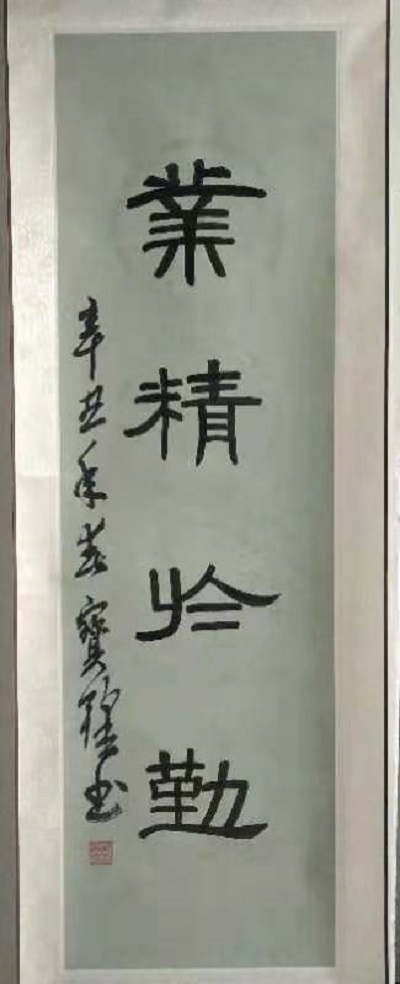 業精於勤
辛丑年春寶龍書